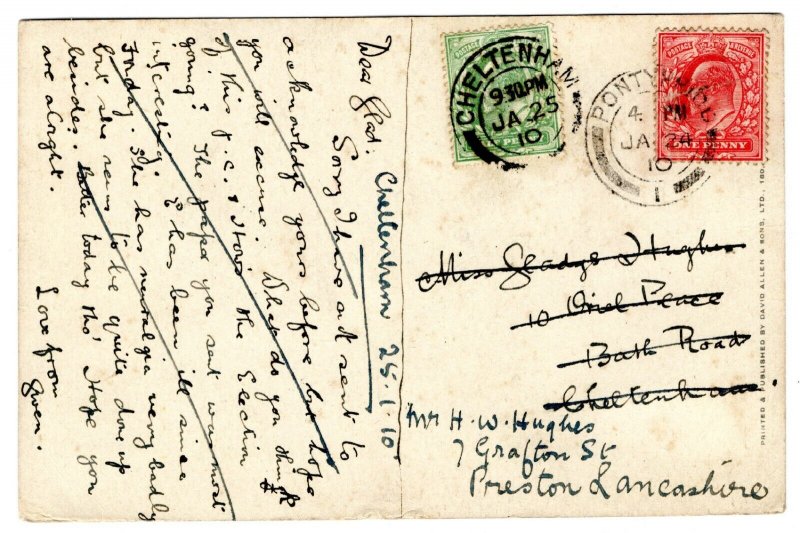 Dear Glad:
Sorry I have not sent to
acknowledge yours before but hope
you will excuse. What do you think
of this P.C. & How's the Election
going? The paper you sent was most
interesting. E has been ill since
Friday. She has neuralgia very badly
but she seems to be quite done up
besides. Better today tho'. Hope you
are alright.
Love from
Gwen.
Cheltenham 25-1-10
CHELTENHAM
9.30PM
JA 25
10
4 PM
JA 24
10
1
POSTAGE & REVENUE
ONE PENNY
Miss Gladys Hughes
10 Oriel Place
Bath Road
Cheltenham.
Mr H. W. Hughes
7 Grafton St
Preston Lancashire
PRINTED & PUBLISHED BY DAVID ALLEN & SONS, LTD.,